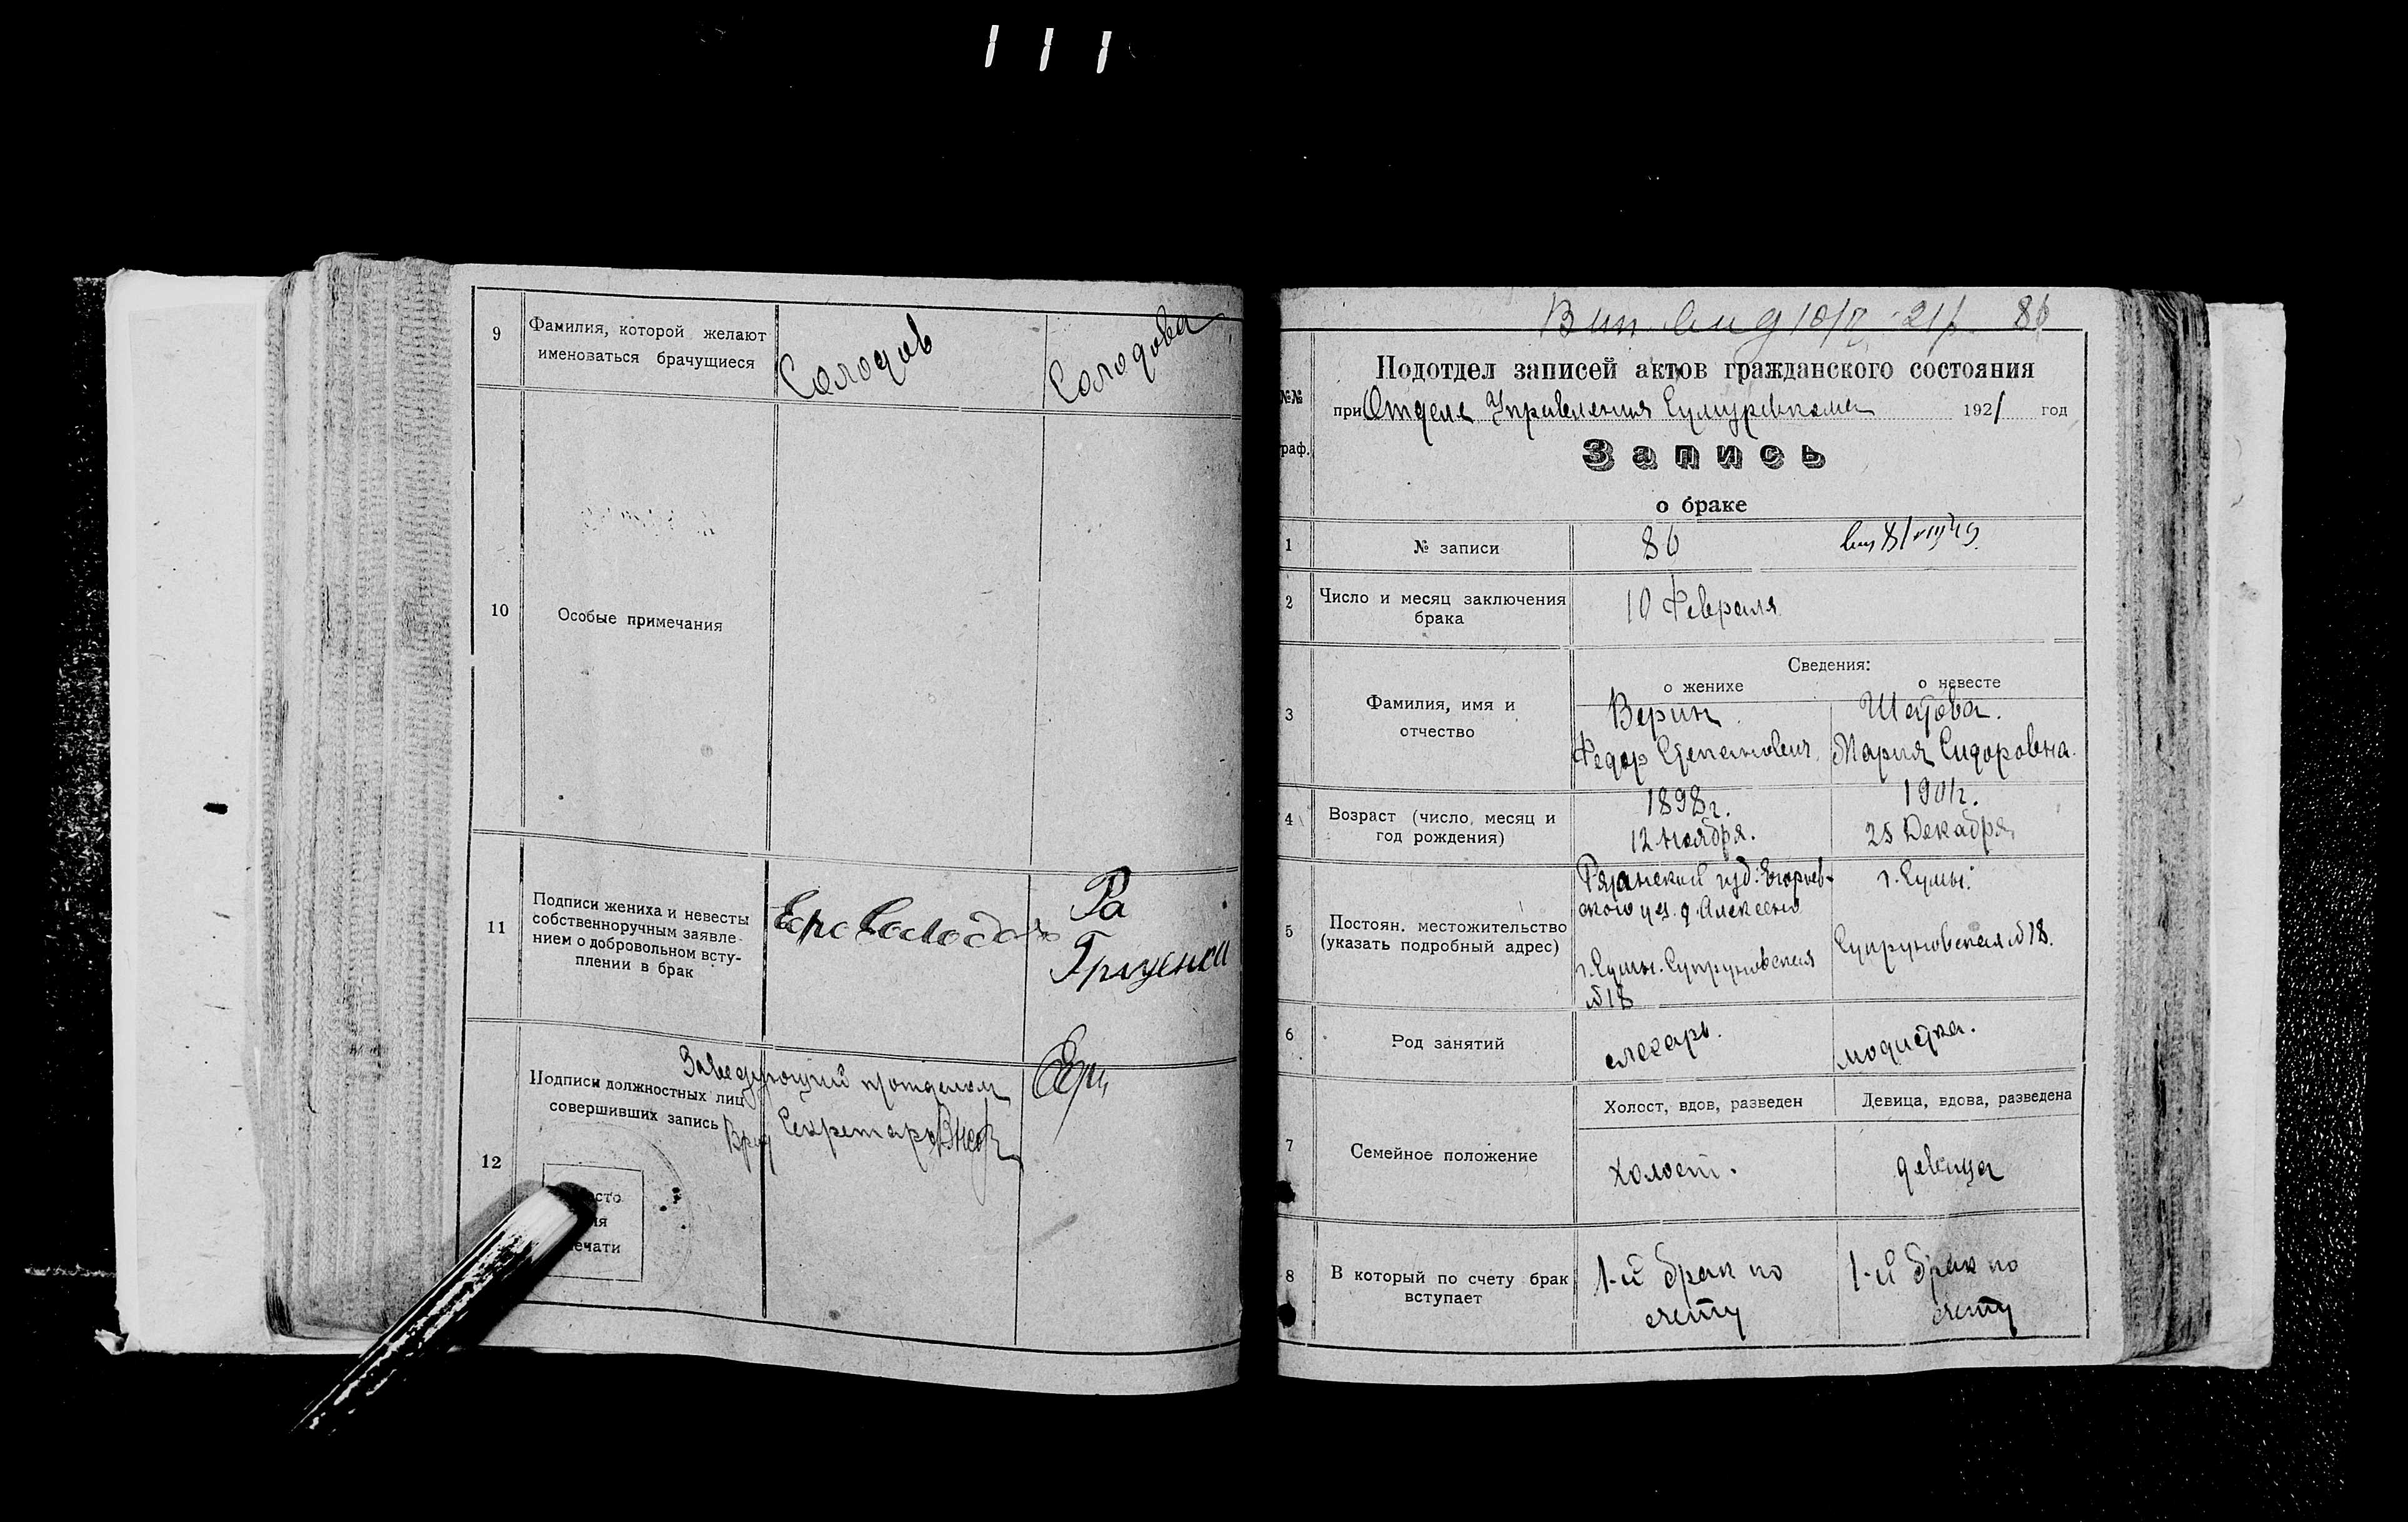 9
Фамилия, которой желают
именоваться брачущиеся
Солодов
Солодова
10
Особые примечания
11
Подписи жениха и невесты
собственноручным заявле-
нием о добровольном всту-
плении в брак
Ра
Гриценко
12
Подписи должностных лиц
совершивших запись
Заведующий подотделом
Секретарь
сто
ия
ечати
86
№№
раф.
Подотдел записей актов гражданского состояния
при Отделе Управления Сумуревкома 1921 год
Запись
о браке
1
№ записи
86
2
Число и месяц заключения
брака
10 Февраля
Сведения:
о женихе
о невесте
3
Фамилия, имя и
отчество
Верин
Федор Степанович
Шатова.
Мария Сидоровна.
4
Возраст (число, месяц и
год рождения)
1898г.
12 Ноября.
1901г.
25 Декабря,
5
Постоян. местожительство
(указать подробный адрес)
Рязанской губ. Егорьев-
ского уез. д. Алексино
г. Сумы. Супруновская
№18
г. Сумы.
Супруновская №18.
6
Род занятий
слесарь.
модистка.
7
Семейное положение
Холост, вдов, разведен
Девица, вдова, разведена
холост.
девица
8
В который по счету брак
вступает
1-й брак по
счету
1-й брак по
счету